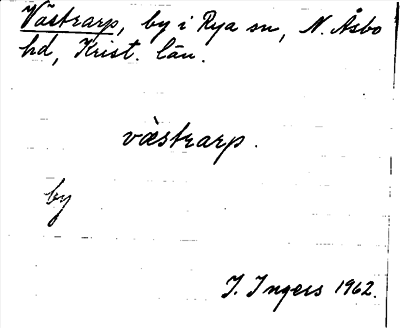 Västrarp, by i Rya sn, N. Åsbo
hd, Krist. län.
västrarp.
by
I. Ingers 1962.